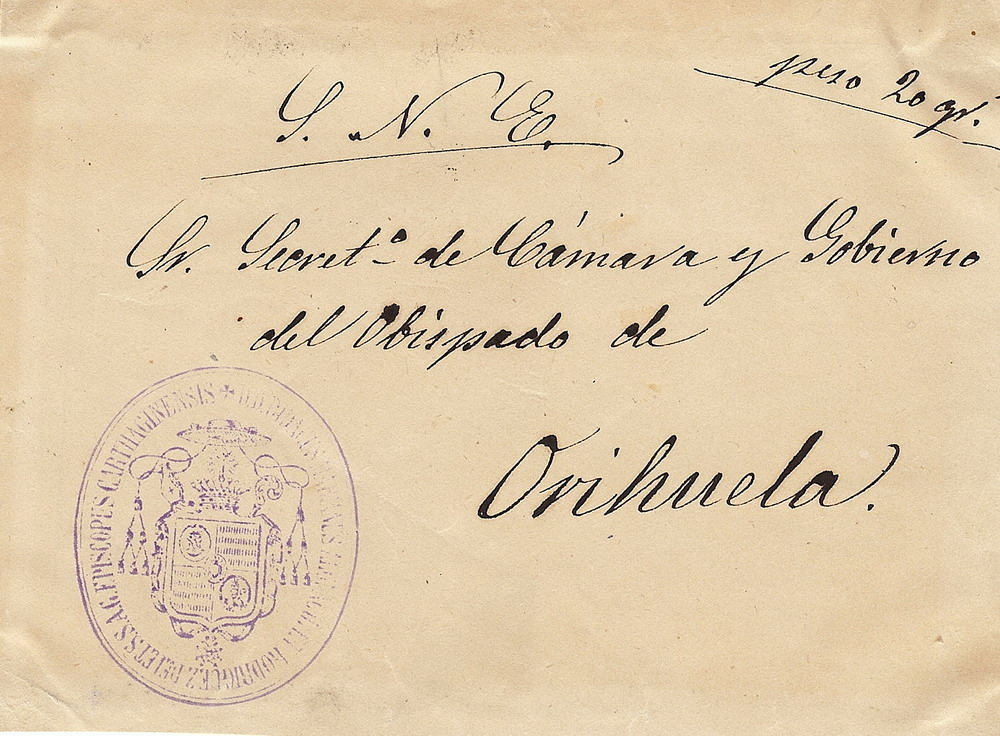 peso 20 gr.
S. N. E.
Sr. Secret.º de Cámara y Gobierno
del Obispado de
Orihuela.
RODRIGUEZ DEI ET S. S. A. G. EPISCOPUS CARTHAGINENSIS ✝